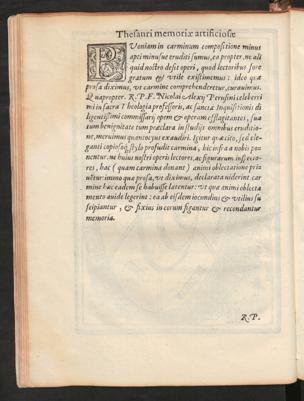 Thesauri memoriæ artificiosæ
QVoniam in carminum compositione minus
apti minusue eruditi sumus, eo propter, ne ali
quid nostro desit operi, quod lectoribus fore
gratum & vtile existimemus: ideo quæ
prosa diximus, vt carmine comprehenderetur, curauimus.
Quapropter. R.P.F. Nicolai Alexij Perusini celeberri
mi in sacra Theologia professoris, ac sanctæ Inquisitionis di
ligentissimi commissarij opem & operam efflagitantes, sua
tum benignitate tum præclara in studijs omnibus eruditio-
ne, meruimus quandoque exaudiri. Igitur quæ cito, sed ele-
ganti copiosoque stylo profudit carmina, hic infra a nobis po
nentur. ne huius nostri operis lectores, ac figurarum inspecto-
res, hac (quam carmina donant) animi oblectatione priu
entur. immo quæ prosa, vt diximus, declarata uiderint. car
mine hæc eadem se habuisse latentur: vt qua animi oblecta
mento auide legerint: ea ab eisdem iocundius & vtilius su
scipiantur, & fixius in eorum figantur & recondantur
memoria.
R.P.